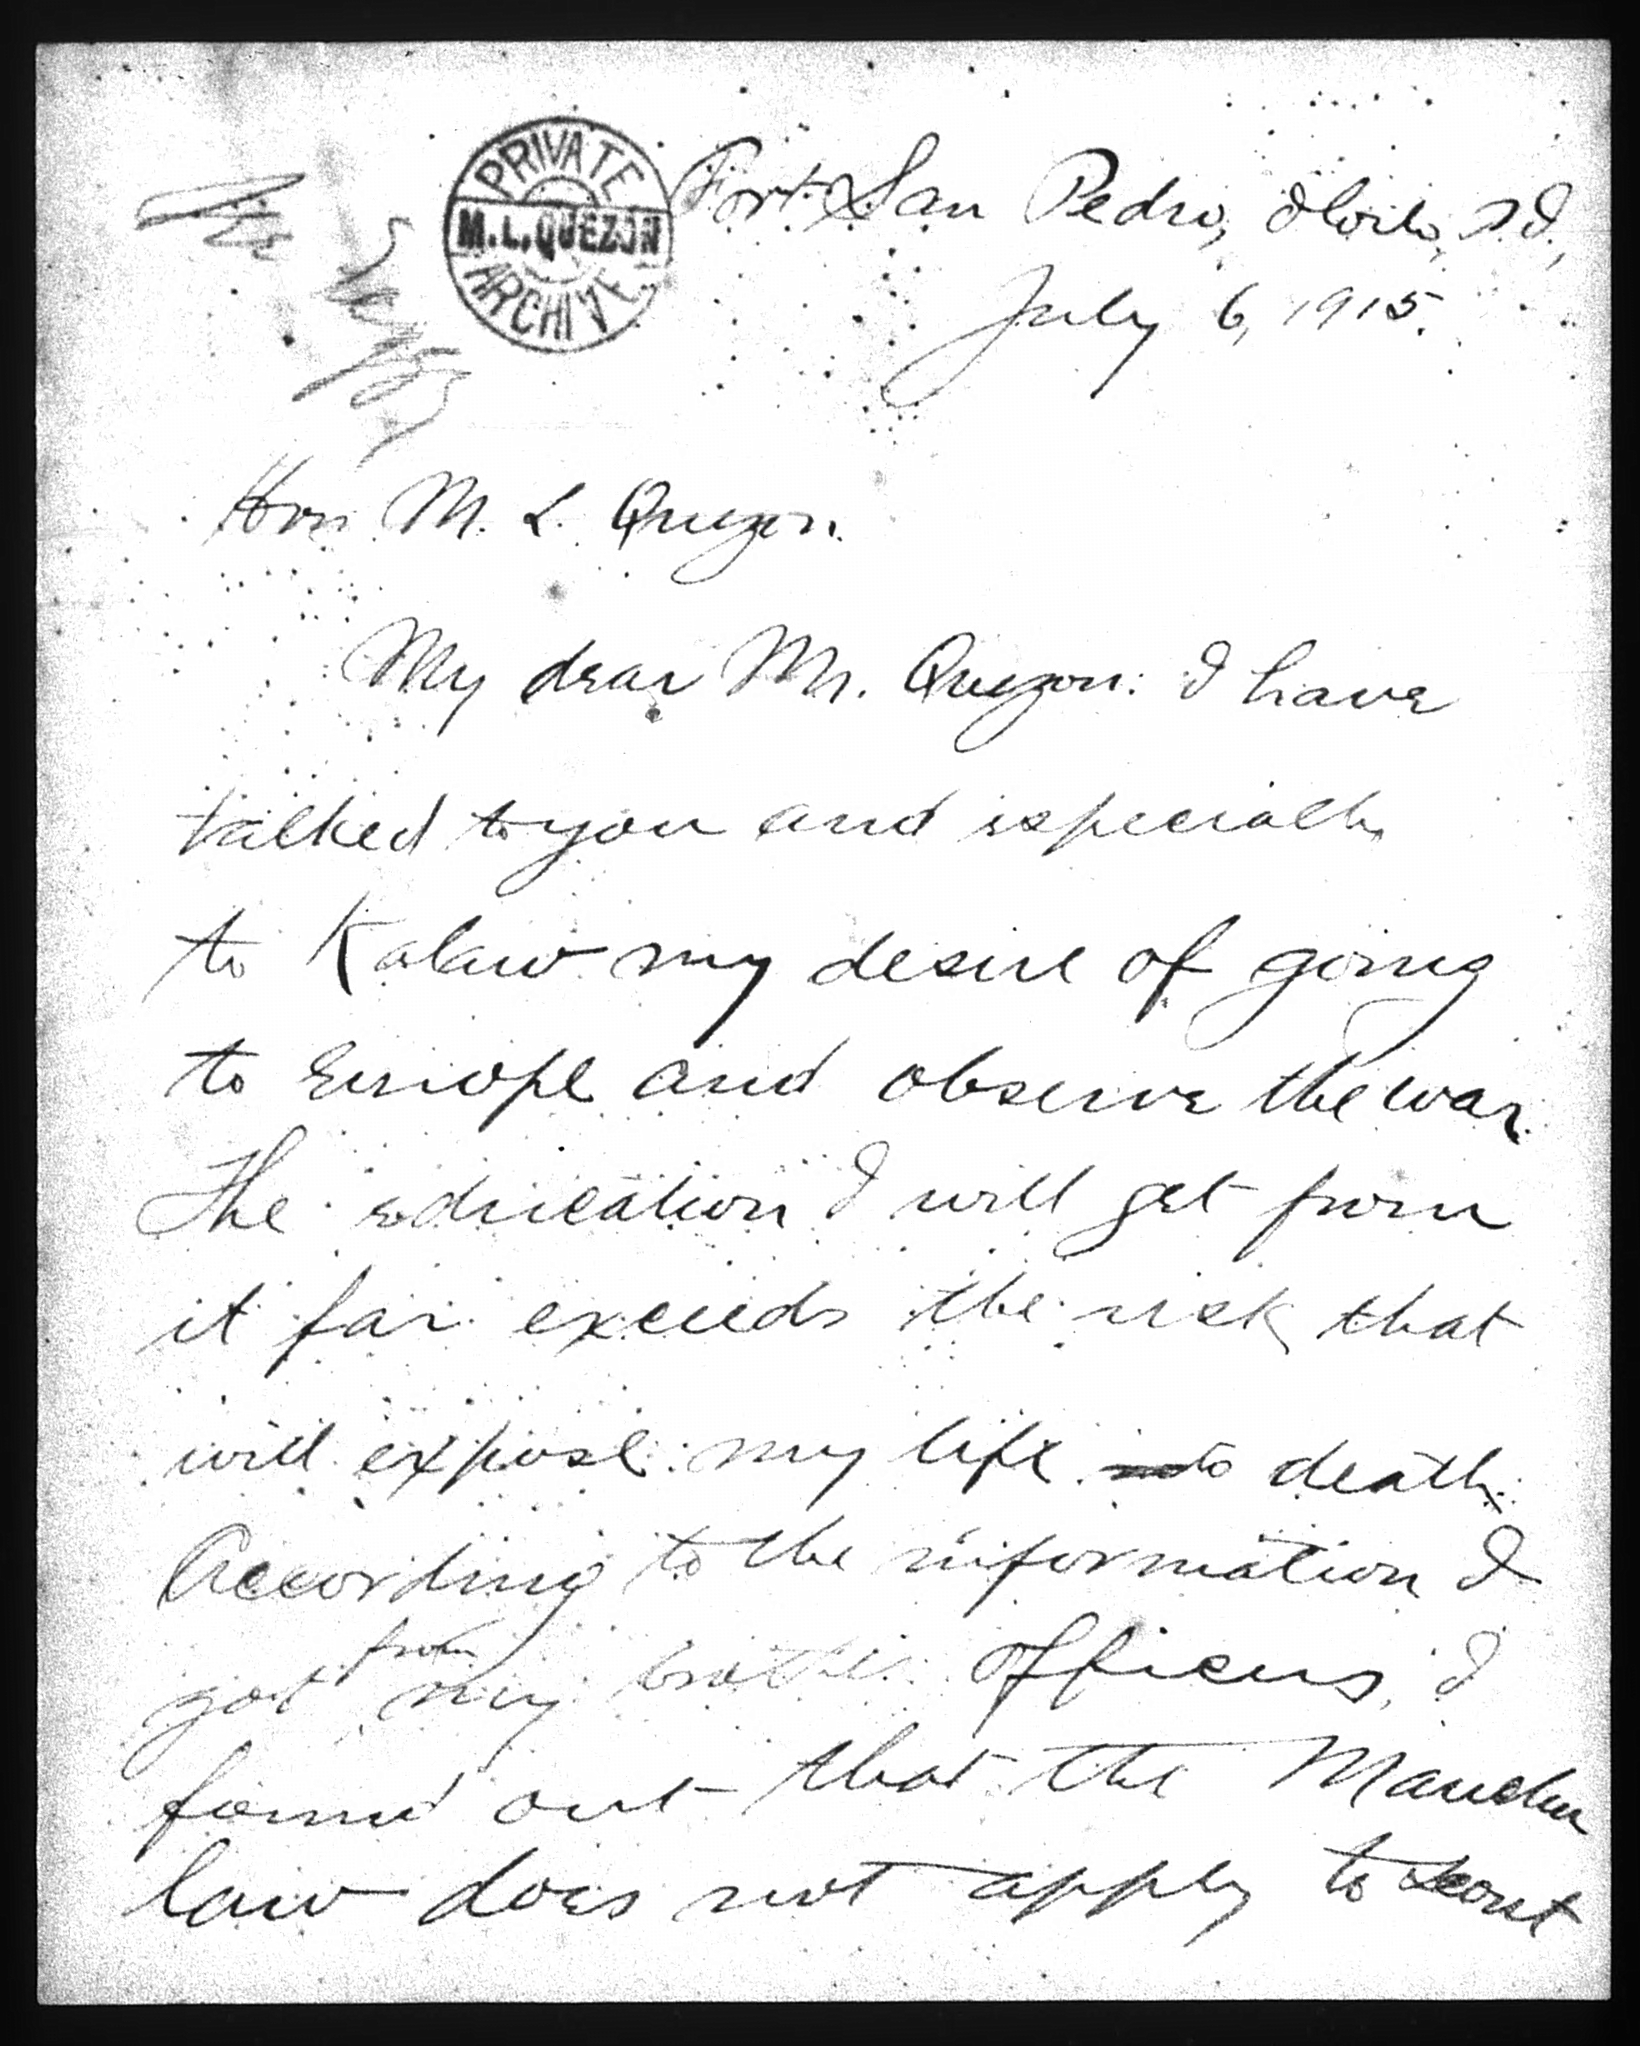 PRIVATE
M. L. QUEZON
ARCHIVE
Fort San Pedro, Iloilo, P.I.,
July 6, 1915.
Hon. M. L. Quezon.
My dear Mr. Quezon: I have
talked to you and especially
to Kalaw my desire of going
to Europe and observe the war.
The education I will get from
it far exceeds the risk that
will expose my life to death.
According to the information I
got from my brother officers, I
found out that the Manchu
law does not apply to scout